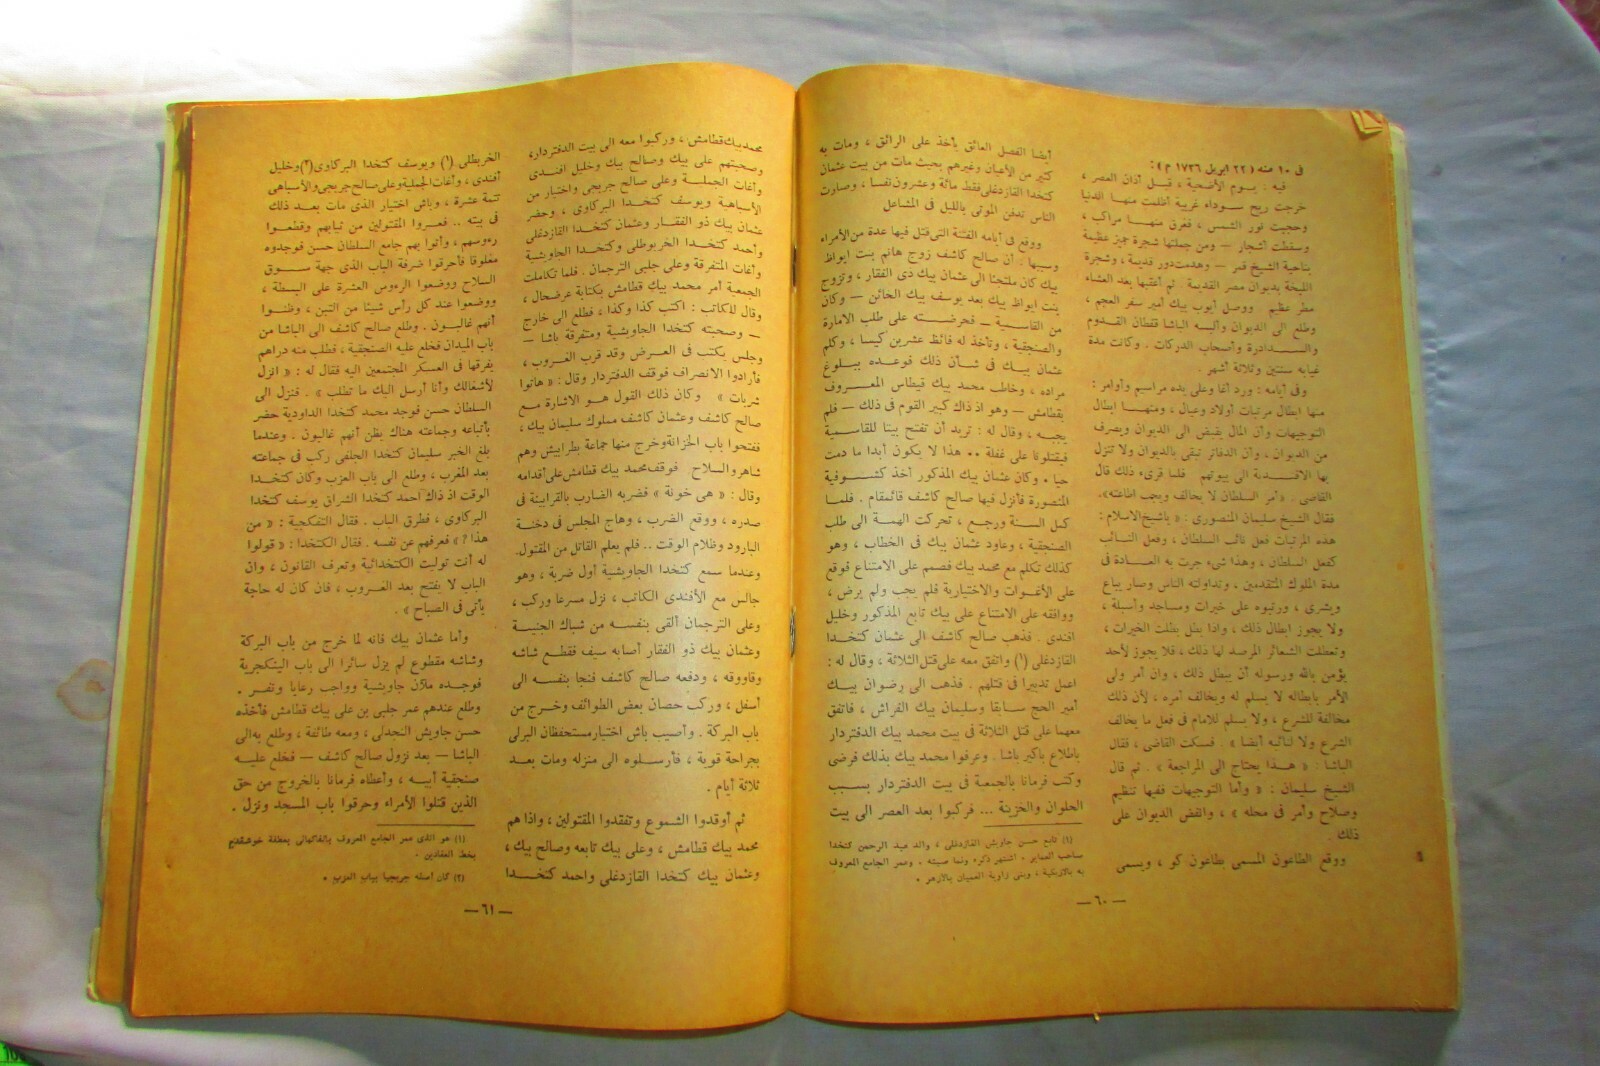 فى ١٠ منه ( ٢٢ ابريل ١٧٣٦ م ) :
فيه : يوم الأضحية ، قبل أذان العصر ،
خرجت ريح سوداء غريبة أظلمت منها الدنيا
وحجبت نور الشمس ، فغرق منها مراكب ،
وسقطت أشجار — ومن جملتها شجرة جميز عظيمة
بناحية الشيخ قمر — وهدمت دور قديمة ، وشجرة
اللبخة بديوان مصر القديمة . ثم أعقبها بعد العشاء
مطر عظيم . ووصل أيوب بيك أمير سفر العجم ،
وطلع الى الديوان وألبسه الباشا قفطان القدوم
والسدادرة وأصحاب الدركات . وكانت مدة
غيابه سنتين وثلاثة أشهر .
وفى أيامه : ورد أغا وعلى يده مراسيم وأوامر :
منها ابطال مرتبات أولاد وعيال ، ومنها ابطال
التوجيهات وأن المال يقبض الى الديوان ويصرف
من الديوان ، وأن الدفاتر تبقى بالديوان ولا تنزل
بها الأفندية الى بيوتهم . فلما قرىء ذلك قال
القاضى . « أمر السلطان لا يخالف ويجب اطاعته » .
فقال الشيخ سليمان المنصورى : « ياشيخ الاسلام :
هذه المرتبات فعل نائب السلطان ، وفعل النائب
كفعل السلطان ، وهذا شىء جرت به العادة فى
مدة الملوك المتقدمين ، وتداولته الناس وصار يباع
ويشرى ، ورتبوه على خيرات ومساجد وأسبلة ،
ولا يجوز ابطال ذلك ، واذا بطل بطلت الخيرات ،
وتعطلت الشعائر المرصد لها ذلك ، فلا يجوز لأحد
يؤمن بالله ورسوله أن يبطل ذلك ، وان أمر ولى
الأمر بابطاله لا يسلم له ويخالف أمره ، لأن ذلك
مخالفة للشرع ، ولا يسلم للامام فى فعل ما يخالف
الشرع ولا لنائبه أيضا » . فسكت القاضى ، فقال
الباشا : « هذا يحتاج الى المراجعة » . ثم قال
الشيخ سليمان : « وأما التوجيهات ففيها تنظيم
وصلاح وأمر فى محله » ، وانفض الديوان على
ذلك
ووقع الطاعون المسمى بطاعون كو ، ويسمى
أيضا الفصل العائق يأخذ على الرائق ، ومات به
كثير من الأعيان وغيرهم بحيث مات من بيت عثمان
كتخدا القازدغلى فقط مائة وعشرون نفسا ، وصارت
الناس تدفن الموتى بالليل فى المشاعل
ووقع فى أيامه الفتنة التى قتل فيها عدة من الأمراء
وسببها : أن صالح كاشف زوج هانم بنت ايواظ
بيك كان ملتجئا الى عثمان بيك ذى الفقار ، وتزوج
بنت ايواظ بيك بعد يوسف بيك الخائن — وكان
من القاسمية — فحرضته على طلب الامارة
والصنجقية ، وتأخذ له فائظ عشرين كيسا ، وكلم
عثمان بيك فى شأن ذلك فوعده ببلوغ
مراده ، وخاطب محمد بيك قيطاس المعروف
بقطامش — وهو اذ ذاك كبير القوم فى ذلك — فلم
يجبه ، وقال له : تريد أن تفتح بيتا للقاسمية
فيقتلونا على غفلة .. هذا لا يكون أبدا ما دمت
حيا . وكان عثمان بيك المذكور أخذ كشوفية
المنصورة فأنزل فيها صالح كاشف قائمقام . فلما
كمل السنة ورجع ، تحركت الهمة الى طلب
الصنجقية ، وعاود عثمان بيك فى الخطاب ، وهو
كذلك تكلم مع محمد بيك فصمم على الامتناع فوقع
على الأغوات والاختيارية فلم يجب ولم يرض ،
ووافقه على الامتناع على بيك تابع المذكور وخليل
افندى . فذهب صالح كاشف الى عثمان كتخدا
القازدغلى (١) واتفق معه على قتل الثلاثة ، وقال له :
اعمل تدبيرا فى قتلهم . فذهب الى رضوان بيك
أمير الحج سابقا وسليمان بيك الفراش ، فاتفق
معهما على قتل الثلاثة فى بيت محمد بيك الدفتردار
باطلاع باكير باشا . وعرفوا محمد بيك بذلك فرضى
وكتب فرمانا بالجمعية فى بيت الدفتردار بسبب
الحلوان والخزينة ... فركبوا بعد العصر الى بيت
(١) تابع حسن جاويش القازدغلى ، والد عبد الرحمن كتخدا
صاحب العماير . اشتهر ذكره ونما صيته . وعمر الجامع المعروف
به بالازبكية ، وبنى زاوية العميان بالازهر .
— ٦٠ —
محمد بيك قطامش ، وركبوا معه الى بيت الدفتردار ،
وصحبتهم على بيك وصالح بيك وخليل افندى
وأغات الجملية وعلى صالح جربجى واختيار من
الأسباهية ويوسف كتخدا البركاوى ، وحضر
عثمان بيك ذو الفقار وعثمان كتخدا القازدغلى
وأحمد كتخدا الخربوطلى وكتخدا الجاويشية
وأغات المتفرقة وعلى جلبى الترجمان . فلما تكاملت
الجمعية أمر محمد بيك قطامش بكتابة عرضحال ،
وقال للكاتب : اكتب كذا وكذا ، فطلع الى خارج
— وصحبته كتخدا الجاويشية ومتفرقة باشا —
وجلس يكتب فى العرض وقد قرب الغروب ،
فأرادوا الانصراف فوقف الدفتردار وقال : « هاتوا
شربات » وكان ذلك القول هو الاشارة مع
صالح كاشف وعثمان كاشف مملوك سليمان بيك ،
ففتحوا باب الخزانة وخرج منها جماعة بطرابيش وهم
شاهرو السلاح فوقف محمد بيك قطامش على أقدامه
وقال : « هى خونة » فضربه الضارب بالقرابينة فى
صدره ، ووقع الضرب ، وهاج المجلس فى دخنة
البارود وظلام الوقت .. فلم يعلم القاتل من المقتول.
وعندما سمع كتخدا الجاويشية أول ضربة ، وهو
جالس مع الأفندى الكاتب ، نزل مسرعا وركب ،
وعلى الترجمان ألقى بنفسه من شباك الجنينة
وعثمان بيك ذو الفقار أصابه سيف فقطع شاشه
وقاووقه ، ودفعه صالح كاشف فنجا بنفسه الى
أسفل ، وركب حصان بعض الطوائف وخرج من
باب البركة . وأصيب باش اختيار مستحفظان البرلى
بجراحة قوية ، فأرسلوه الى منزله ومات بعد
ثلاثة أيام .
ثم أوقدوا الشموع وتفقدوا المقتولين ، واذا هم
محمد بيك قطامش ، وعلى بيك تابعه وصالح بيك ،
وعثمان بيك كتخدا القازدغلى واحمد كتخدا
الخربطلى (١) ويوسف كتخدا البركاوى (٢) وخليل
أفندى ، وأغات الجملية وعلى صالح جربجى والأسباهى
تتمة عشرة ، وباش اختيار الذى مات بعد ذلك
فى بيته .. فعروا المقتولين من ثيابهم وقطعوا
رءوسهم ، وأتوا بهم جامع السلطان حسن فوجدوه
مغلوقا فأحرقوا ضرفة الباب الذى جهة سوق
السلاح ووضعوا الرءوس العشرة على البسطة ،
ووضعوا عند كل رأس شيئا من التبن ، وظنوا
أنهم غالبون . وطلع صالح كاشف الى الباشا من
باب الميدان فخلع عليه الصنجقية ، فطلب منه دراهم
يفرقها فى العسكر المجتمعين اليه فقال له : « انزل
لأشغالك وأنا أرسل اليك ما تطلب » . فنزل الى
السلطان حسن فوجد محمد كتخدا الداودية حضر
بأتباعه وجماعته هناك يظن أنهم غالبون . وعندما
بلغ الخبر سليمان كتخدا الجلفى ركب فى جماعته
بعد المغرب ، وطلع الى باب العزب وكان كتخدا
الوقت اذ ذاك احمد كتخدا اشراق يوسف كتخدا
البركاوى ، فطرق الباب . فقال التفكجية : « من
هذا ? » فعرفهم عن نفسه . فقال الكتخدا : « قولوا
له أنت توليت الكتخدائية وتعرف القانون ، وأن
الباب لا يفتح بعد الغروب ، فان كان له حاجة
يأتى فى الصباح » .
وأما عثمان بيك فانه لما خرج من باب البركة
وشاشه مقطوع لم يزل سائرا الى باب الينكجرية
فوجده ملآن جاويشية وواجب رعايا ونفر .
وطلع عندهم عمر جلبى بن على بيك قطامش فأخذه
حسن جاويش النجدلى ، ومعه طائفة ، وطلع به الى
الباشا — بعد نزول صالح كاشف — فخلع عليه
صنجقية أبيه ، وأعطاه فرمانا بالخروج من حق
الذين قتلوا الأمراء وحرقوا باب المسجد ونزل .
(١) هو الذى عمر الجامع المعروف بالفاكهانى بعطفة خوشقدم
بخط العقادين .
(٢) كان أصله جربجيا بباب العزب .
— ٦١ —